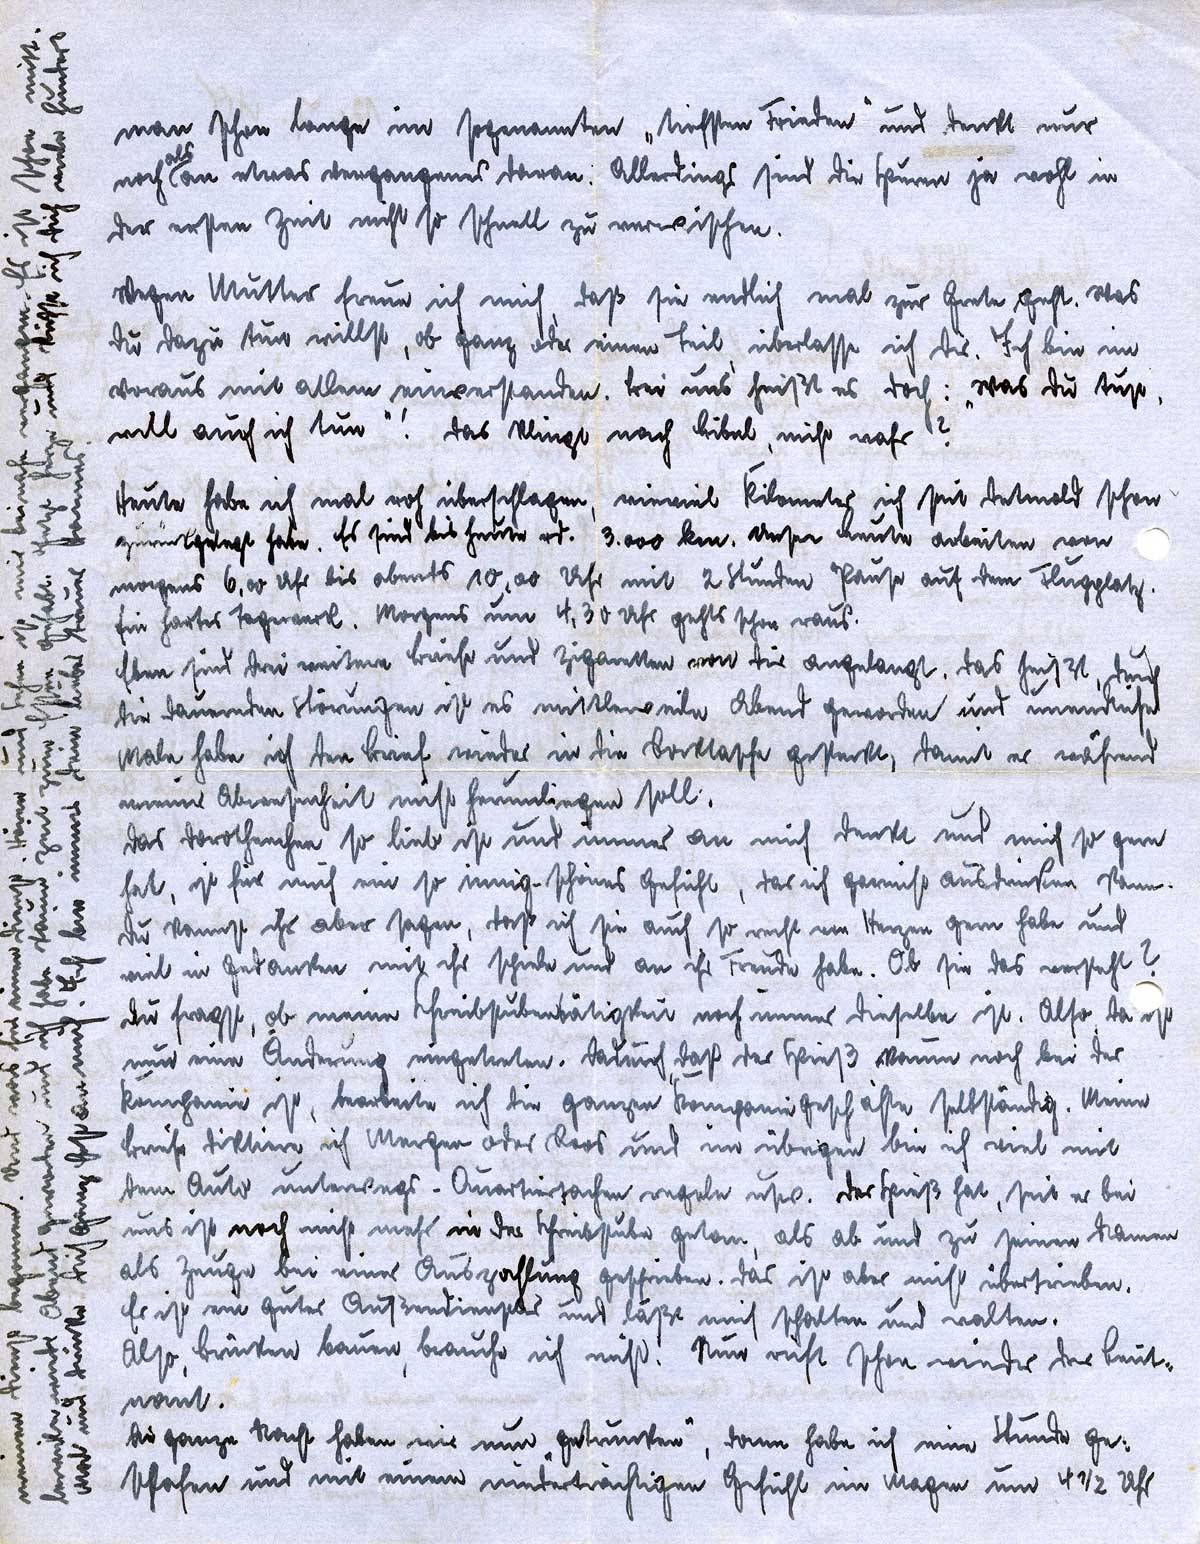 man schon lange im sogenannten „tiefsten Frieden“ und denkt nur
noch als an etwas vergangenes daran. Allerdings sind die Spuren ja wohl in
der ersten Zeit nicht so schnell zu verwischen.
Wegen Mutter freue ich mich, daß sie endlich mal zur Grete geht. Was
Du dazu tun willst, ob ganz oder einen Teil, überlasse ich Dir. Ich bin im
voraus mit allem einverstanden. Bei uns heißt es doch: „Was Du tust,
will auch ich tun“! Das klingt nach Bibel, nicht wahr?
Heute habe ich mal roh überschlagen, wieviel Kilometer ich seit Detmold schon
zurückgelegt habe. Es sind bis heute rd. 3.000 km. Unser Leute arbeiten von
morgens 6,00 Uhr bis abends 10,00 Uhr mit 2 Stunden Pause auf dem Flugplatz.
Ein hartes Tagewerk. Morgens um 4,30 Uhr gehts schon raus.
Eben sind drei weitere Briefe und Zigaretten von Dir angelangt. Das heißt, durch
die dauernden Störungen ist es mittlerweile Abend geworden und unendliche
Male habe ich den Brief wieder in die Rocktasche gesteckt, damit er während
meiner Abwesenheit nicht herumliegen soll.
Das Dorotheechen so lieb ist und immer an mich denkt und mich so gern
hat, ist für mich ein so innig-schönes Gefühl, das ich garnicht ausdrücken kann.
Du kannst ihr aber sagen, daß ich sie auch so recht von Herzen gern habe und
viel in Gedanken mit ihr und an ihr Freude habe. Ob sie das versteht?
Du fragst, ob meine Schreibstubentätigkeit noch immer dieselbe ist. Also, da ist
nur eine Änderung eingetreten. Dadurch, daß der Spieß kaum noch bei der
Kompanie ist, bearbeite ich die ganzen Kompaniegeschäfte selbständig. Meine
Briefe diktiere ich oder und im übrigen bin ich viel mit
dem Auto unterwegs - Quartiersachen regeln usw. Der Spieß hat, seit er bei
uns ist noch nicht mehr in der Schreibstube getan, als ab und zu seinen Namen
als Zeuge bei einer Auszahlung geschrieben. Das ist aber nicht übertrieben.
Er ist ein guter Außendienster und läßt mich schalten und walten.
Also, Brücken bauen, brauche ich nicht. Nun ruft schon wieder der Leut-
nant.
Die ganze Nacht haben wir nun „getrunken“, dann habe ich eine Stunde ge-
schlafen und mit einem niederträchtigen Gefühl im Magen um 4 1/2 Uhr
meinen Dienst begonnen. Und was für einen Dienst. Hören und Sehen ist mir beinahe vergangen. Es ist schon
bereits wieder Abend geworden und ich habe kaum Zeit zum
und drücke Dich ganz fest an mich. Ich bin immer Dein lieber